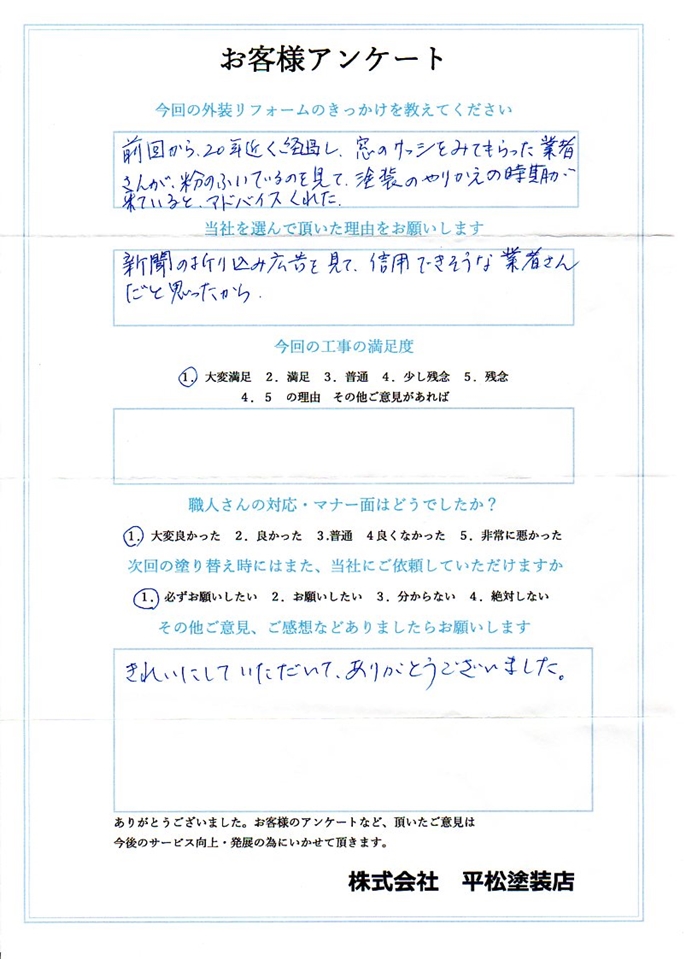 お客様アンケート
今回の外装リフォームのきっかけを教えてください
前回から、20年近くご経過し、窓のサッシをみてもらった業者
さんが、粉のふいているのを見て、塗装のやりかえの時期が
来ていると、アドバイスくれた.
当社を選んで頂いた理由をお願いします
新聞の折り込み広告を見て、信用できそうな業者さん
だと思ったから.
今回の工事の満足度
1. 大変満足 2. 満足 3. 普通 4. 少し残念 5. 残念
4. 5 の理由 その他ご意見があれば
職人さんの対応・マナー面はどうでしたか？
1. 大変良かった 2. 良かった 3.普通 4良くなかった 5. 非常に悪かった
次回の塗り替え時にはまた、当社にご依頼していただけますか
1. 必ずお願いしたい 2. お願いしたい 3. 分からない 4. 絶対しない
その他ご意見、ご感想などありましたらお願いします
きれいにしていただいて、ありがとうございました。
ありがとうございました。お客様のアンケートなど、頂いたご意見は
今後のサービス向上・発展の為にいかせて頂きます。
株式会社 平松塗装店